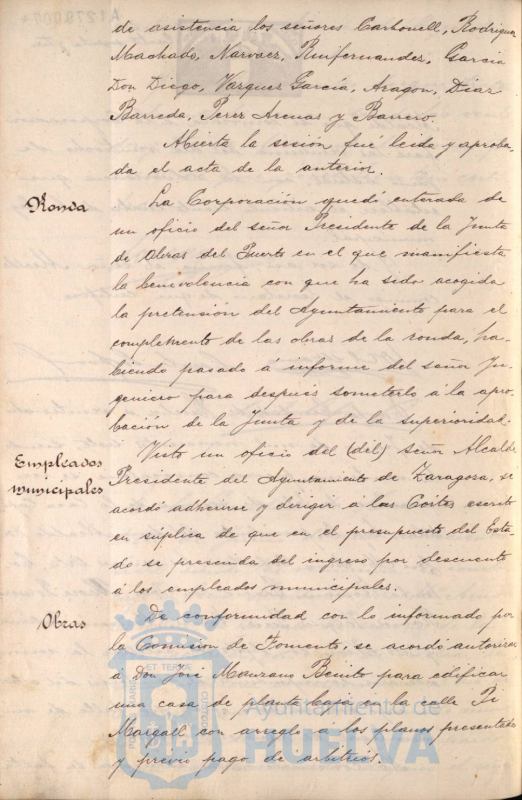 de asistencia los señores Carbonell, Rodriguez
Machado, Narvaez, Ruifernandez, Garcia
Don Diego, Vazquez García, Aragon, Diaz
Barreda, Perez Arenas y Barrero.
Abierta la sesión fué leida y aproba-
da el acta de la anterior.
Ronda
La Corporación quedó enterada de
un oficio del señor Presidente de la Junta
de Obras del Puerto en el que manifiesta
la benevolencia con que ha sido acogida
la pretensión del Ayuntamiento para el
complemento de las obras de la ronda, ha-
biendo pasado á informe del señor In-
genicro para despues someterlo á la apro-
bación de la Junta y de la superioridad.
Empleados
municipales
Visto un oficio del (del) señor Alcalde
Presidente del Ayuntamiento de Zaragosa, se
acordó adherirse y dirigir a las Córtes escrito
en súplica de que en el presupuesto del Esta-
do se prescinda del ingreso por descuento
á los empleados municipales.
Obras
De conformidad con lo informado por
la Comisión de Fomento, se acordó autorizar
á Don José Manzano Benito para edificar
una casa de planta baja en la calle Pi
Margall con arreglo a los planos presentados
y previo pago de arbitrios.
Ayuntamiento de
HUELVA